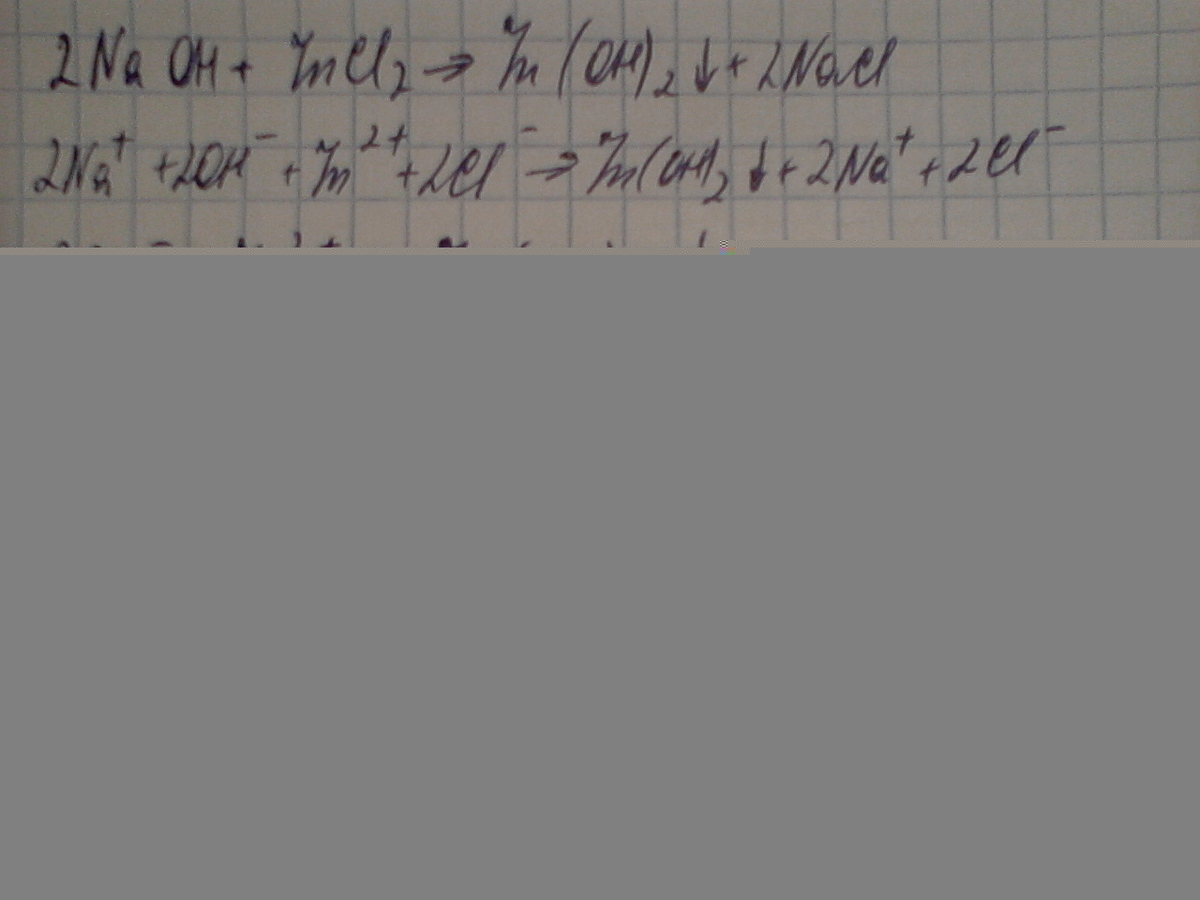 2NaOH + ZnCl₂ → Zn(OH)₂↓ + 2NaCl
2Na⁺ + 2OH⁻ + Zn²⁺ + 2Cl⁻ → Zn(OH)₂↓ + 2Na⁺ + 2Cl⁻